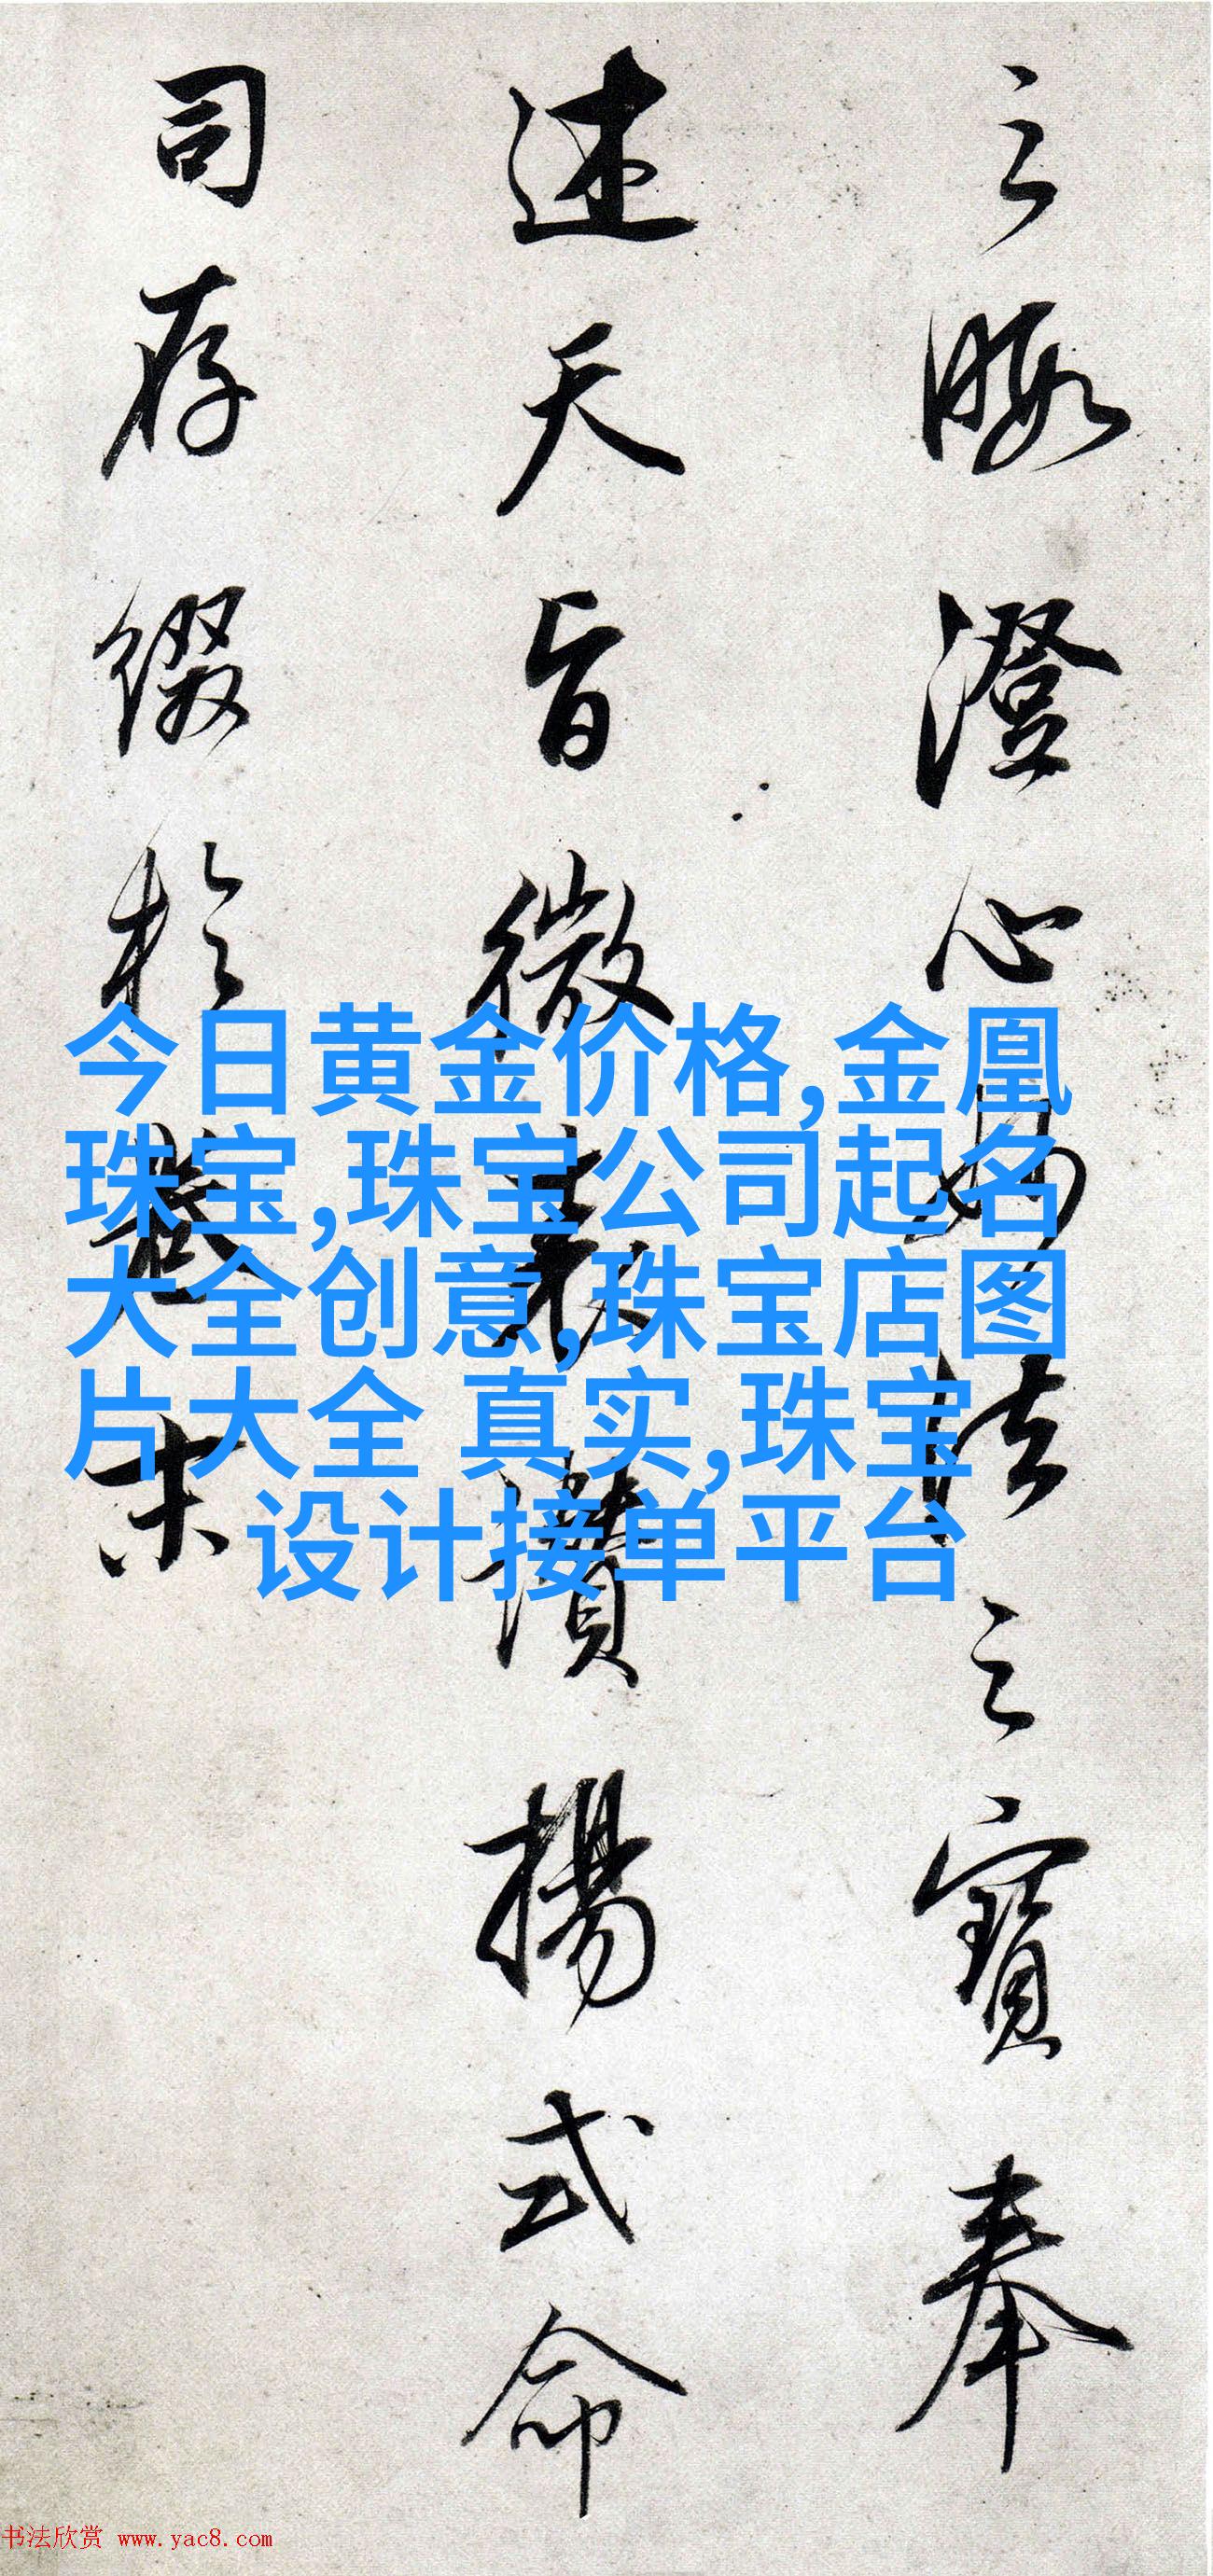 之暇澄心妙法之寶奉
述天旨微表讚揚式命
司存綴於卷末
今日黄金价格,金凰
珠宝,珠宝公司起名
大全创意,珠宝店图
片大全 真实,珠宝
设计接单平台
书法欣赏 www.yac8.com